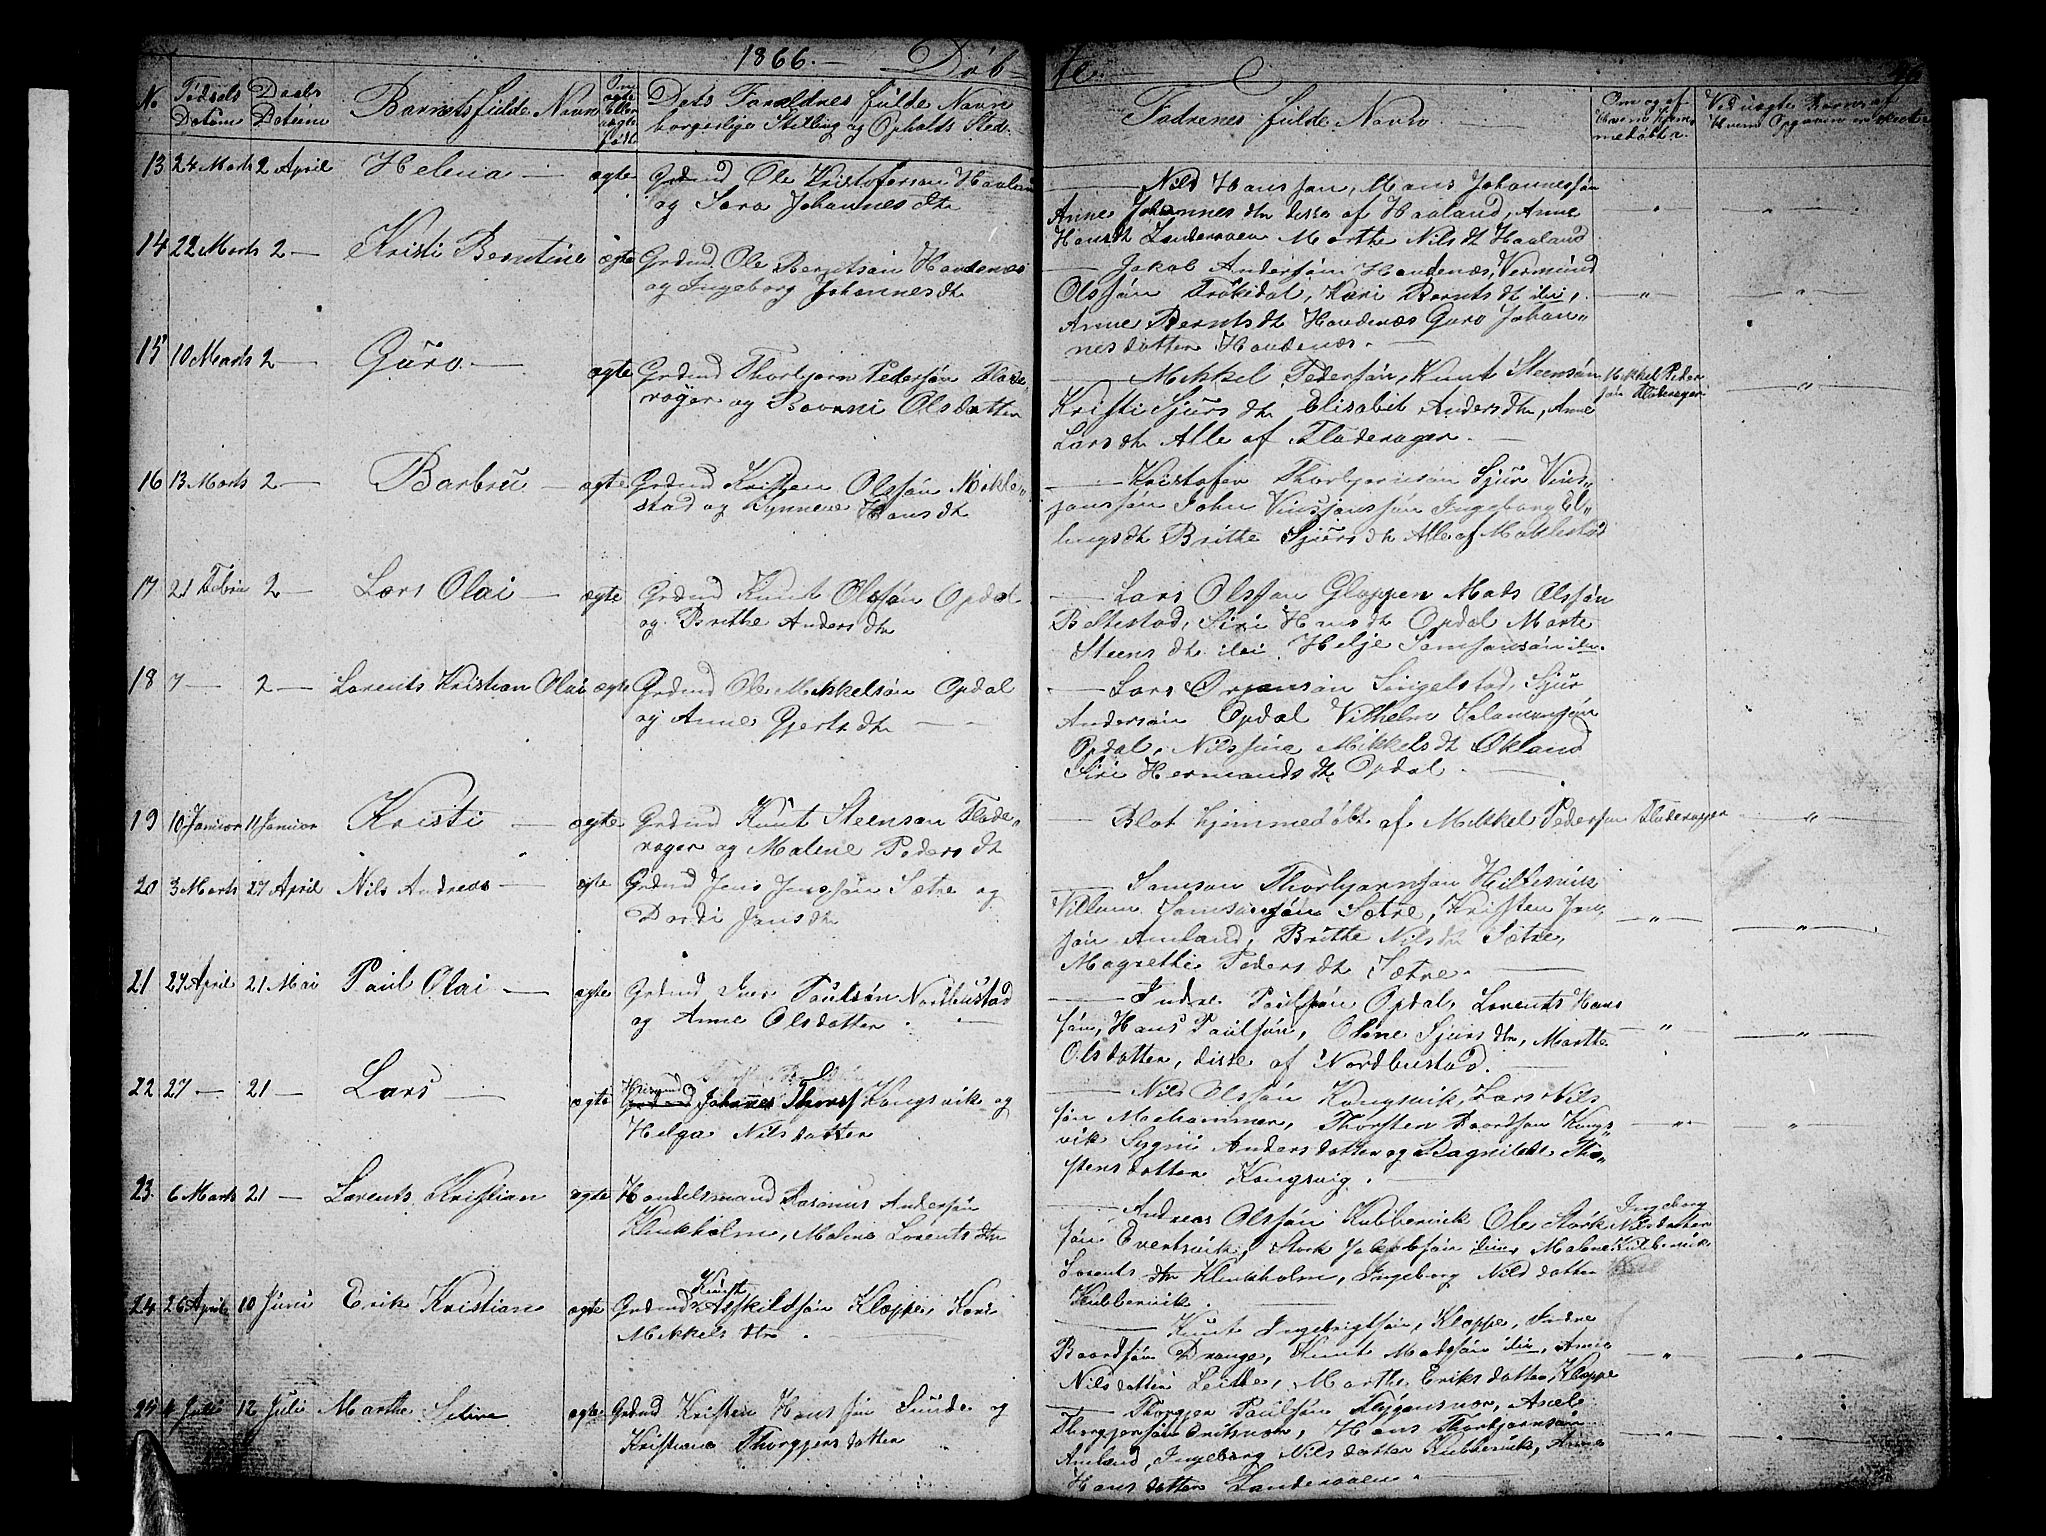 1866. — Døb-
te.
No
Fødsels Datum
Daabs Datum
Barnets fulde Navn
Om ægte Eller uægte født
Dets Forældres fulde Navn
borgerlige Stilling og Opholds Sted.
Fadrenes fulde Navn
Om og af Hvem hjemmedøbte.
Ved uægte Børn af
Hvem Opgaven er
13 24 Marts 2 April Helena — ægte Grdmd Ole Kristofersøn Haaland
og Sara Johannesdtr
— Nils Hanssøn, Mons Johannessøn
Anne Johannesdtr disse af Haaland, Anne
Hansdt Landeraaen Marthe Nilsdt Haaland
14 22 Marts 2 — Kristi Berntine ægte Grdmd Ole Berentsøn Haukenæs
og Ingeborg Johannesdt
— Jakob Andersøn Haukenæs, Vermund
Olssøn Frøkedal, Kari Berntsdt
Anne Berntsdt Haukenæs Guro Johan„
nesdatter Haukenæs. —
15 10 Marts 2 — Guro. — ægte Grdmd Thorbjørn Pedersøn Flade„
rager og Olsdatter
— Mikkel Pedersøn, Knut Steensøn
Kristi Sjursdtr Elisabet Andersdtr, Anne
Larsdt Alle af Fladerager. —
Mikkel Peder
søn Flaterager
16 13 Marts 2 — Barbru — ægte Grdmd Kristen Olssøn Mikle„
stad og Hansdt
— Kristofer Thorbjørnsøn Sjur Vins„
janssøn John Vinsjanssøn Ingeborg El„
lingsdt Brithe Sjursdt Alle af Miklestad
17 21 Febru 2 — Lars Olai — ægte Grdmd Knut Olssøn Opdal
og Brithe Andersdtr
— Lars Olssøn Gloppen Mads Olssøn
Beltestad, Siri Hansdt Opdal Marte
Steensdt Helje Samsonsøn
18 7 — 2 — Lorents Kristian Olai ægte Grdmd Ole Mikkelsøn Opdal
og Anne Gjertsdtr — —
— Lars Ørjansøn Singelstad, Sjur
Andersøn Opdal Vilhelm Salamonsøn
Opdal. Nilssine Mikkelsdt Økland
Siri Hermandsdt Opdal. —
19 10 Januar 11 Januar Kristi — ægte Grdmd Knut Steensøn Flade„
rager og Malene Pedersdt
— Blot hjemmedøbt af Mikkel Pedersøn Fladerager — „ —
20 3 Marts 27 April Nils Andreas — ægte Grdmd Jens Jenssøn Sætre og
Dordi Jansdtr
— Samson Thorbjørnsøn Hiltesvik
Villum Samsonsøn Sætre, Kristen Jen„
søn Amland, Brithe Nilsdtr Sætre,
Magrethe Pedersdt Sætre. —
21 27 April 21 Mai Paul Olai — ægte Grdmd Iver Paulsøn Nordhustad
og Anne Olsdatter. —
— Indre Paulsøn Opdal, Lorents Hans
søn, Hans Paulsøn, Oline Sjursdtr, Marthe
Olsdatter, disse af Nordhustad.
22 27 — 21 — Lars — ægte Husmd Johannes Thorss Kongsvik og
Helga Nilsdatter
— Nils Olssøn Kongsvik, Lars Nils
søn Mehammer, Thorsten Baardsøn Kongs„
vik Sygni Andersdatter og Ragnilde Tho„
stensdatter Kongsvig. —
23. 6 Marts 21 — Lorents Kristian ægte Handelsmand Rasmus Andersøn
Klinkholm, Malena Lorentsdtr
— Andreas Olssøn Kubbervik Ole Stork
søn Evertsvik, Stork Jakobsøn Malene
Lorentsdtr Klinkholm, Ingeborg Nilsdatter
Kubbervik. —
Ingeborg
Nilsdatter
Kubbervik
24 26 April 10 Juni Erik Kristian ægte Grdmd Knut Asskildsøn Kloppe, Kari
Mikkelsdtr. —
— Knut Ingebrigtsøn, Kloppe, Indre
Baardsøn Drange, Knut Madssøn Anna
Nilsdatter Leithe, Marthe Eriksdatter, Kloppe
25 4 Juli 12 Juli Marthe Seline ægte Grdmd Kristen Hanssøn Sunde og
Kristiana Thorgjersdatter
— Thorgjer Paulsøn Axel
Thorgjersøn Hans Thorbjørnsøn
Amland, Ingeborg Nilsdatter Kubbervik, Anna
Hansdatter Landeraaen. —